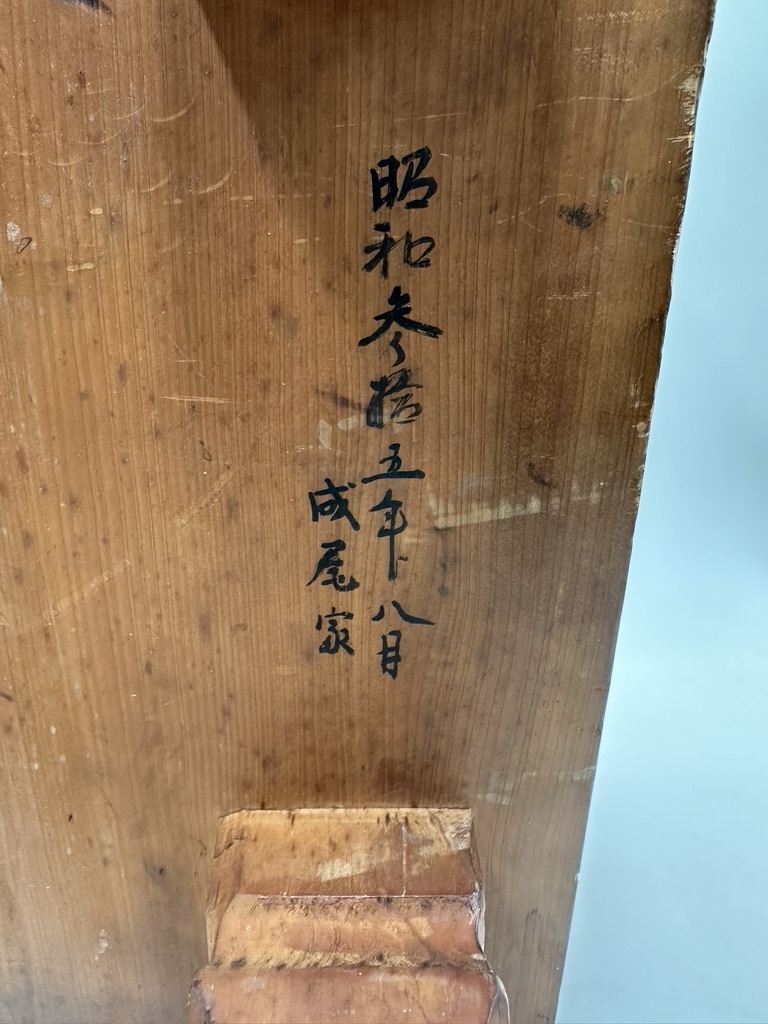 昭和参拾五年八月
成尾家